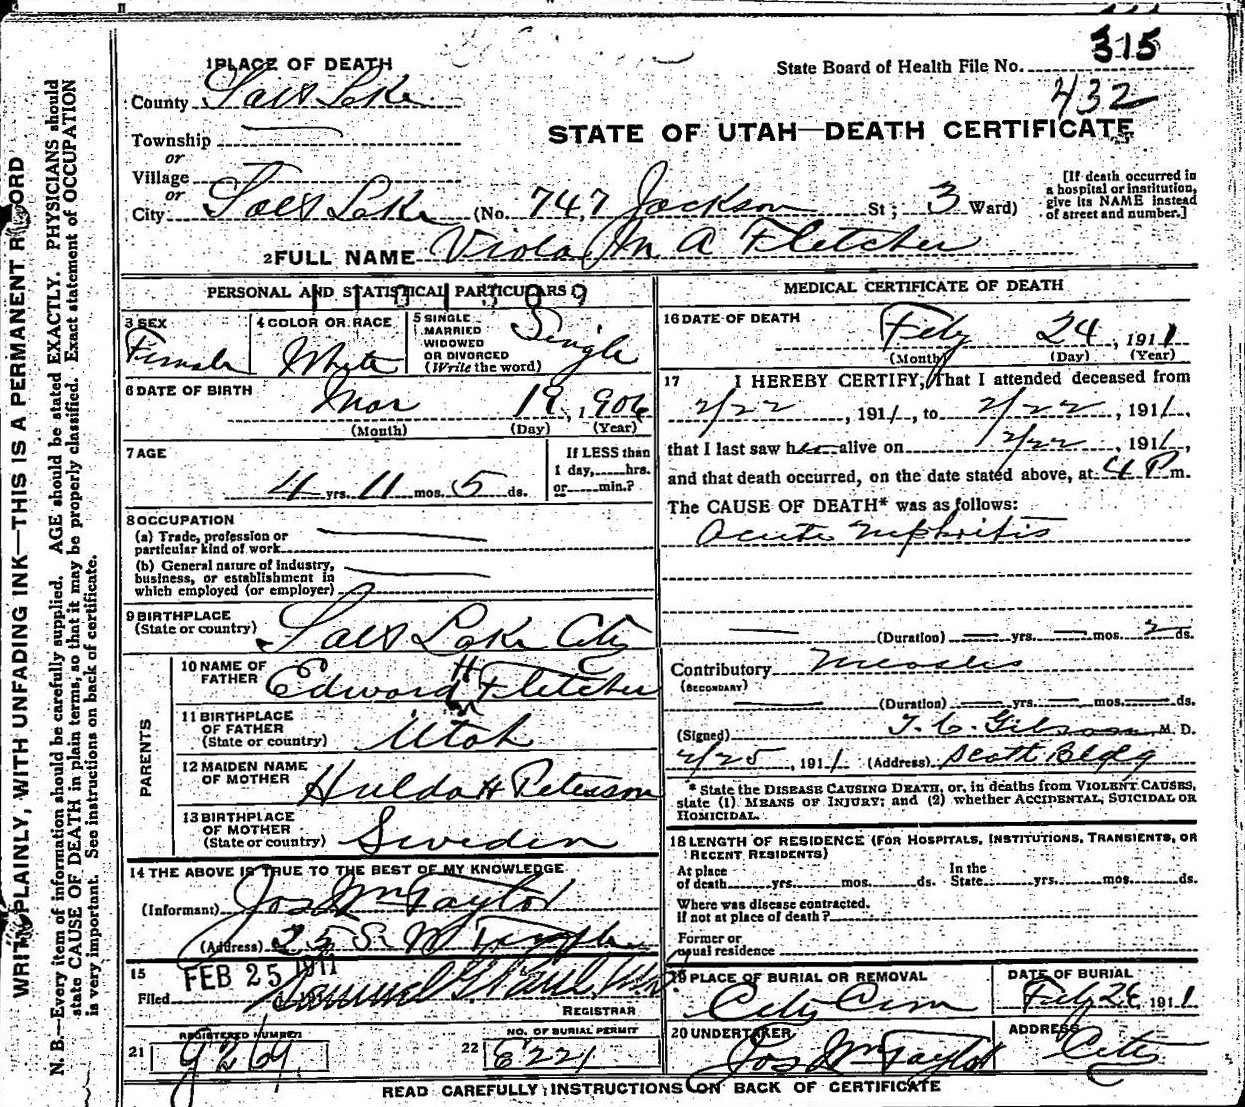 315
State Board of Health File No.
432
1 PLACE OF DEATH
County Salt Lake
Township
or
Village
or
City Salt Lake (No. 747 Jackson St; 3 Ward)
STATE OF UTAH—DEATH CERTIFICATE
[If death occurred in
a hospital or institution,
give its NAME instead
of street and number.]
2 FULL NAME Viola M A Fletcher
PERSONAL AND STATISTICAL PARTICULARS
3 SEX
Female
4 COLOR OR RACE
White
5 SINGLE
MARRIED
WIDOWED
OR DIVORCED
(Write the word)
Single
6 DATE OF BIRTH
Mar 19, 1906
(Month) (Day) (Year)
7 AGE
4 yrs. 11 mos. 5 ds.
If LESS than
1 day, hrs.
or min.?
8 OCCUPATION
(a) Trade, profession or
particular kind of work
(b) General nature of industry,
business, or establishment in
which employed (or employer)
9 BIRTHPLACE
(State or country) Salt Lake City
PARENTS
10 NAME OF
FATHER
Edward H Fletcher
11 BIRTHPLACE
OF FATHER
(State or country) Utah
12 MAIDEN NAME
OF MOTHER Hulda H Peterson
13 BIRTHPLACE
OF MOTHER
(State or country) Sweden
14 THE ABOVE IS TRUE TO THE BEST OF MY KNOWLEDGE
(Informant) Jos Wm Taylor
(Address) 25 S. W Temple
15
Filed FEB 25 1911
REGISTRAR
REGISTERED NUMBER
21 9269
NO. OF BURIAL PERMIT
22 E221
MEDICAL CERTIFICATE OF DEATH
16 DATE OF DEATH
Feby 24, 1911
(Month) (Day) (Year)
17 I HEREBY CERTIFY, That I attended deceased from
2/22, 1911, to 2/22, 1911,
that I last saw her alive on 2/22, 1911,
and that death occurred, on the date stated above, at 4 P m.
The CAUSE OF DEATH* was as follows:
Acute Nephritis
(Duration) yrs. mos. 2 ds.
Contributory Measles
(SECONDARY)
(Duration) yrs. mos. ds.
(Signed) T. C. Gibson M. D.
2/25, 1911 (Address) Scott Bldg
* State the DISEASE CAUSING DEATH, or, in deaths from VIOLENT CAUSES,
state (1) MEANS OF INJURY; and (2) whether ACCIDENTAL, SUICIDAL OR
HOMICIDAL.
18 LENGTH OF RESIDENCE (FOR HOSPITALS, INSTITUTIONS, TRANSIENTS, OR
RECENT RESIDENTS)
At place
of death yrs. mos. ds.
In the
State yrs. mos. ds.
Where was disease contracted.
if not at place of death?
Former or
usual residence
19 PLACE OF BURIAL OR REMOVAL
City Cem
DATE OF BURIAL
Feby 26 1911
20 UNDERTAKER
Jos Wm Taylor
ADDRESS
City
READ CAREFULLY INSTRUCTIONS ON BACK OF CERTIFICATE
WRITE PLAINLY, WITH UNFADING INK—THIS IS A PERMANENT RECORD
N. B.—Every item of information should be carefully supplied. AGE should be stated EXACTLY. PHYSICIANS should
state CAUSE OF DEATH in plain terms, so that it may be properly classified. Exact statement of OCCUPATION
is very important. See instructions on back of certificate.